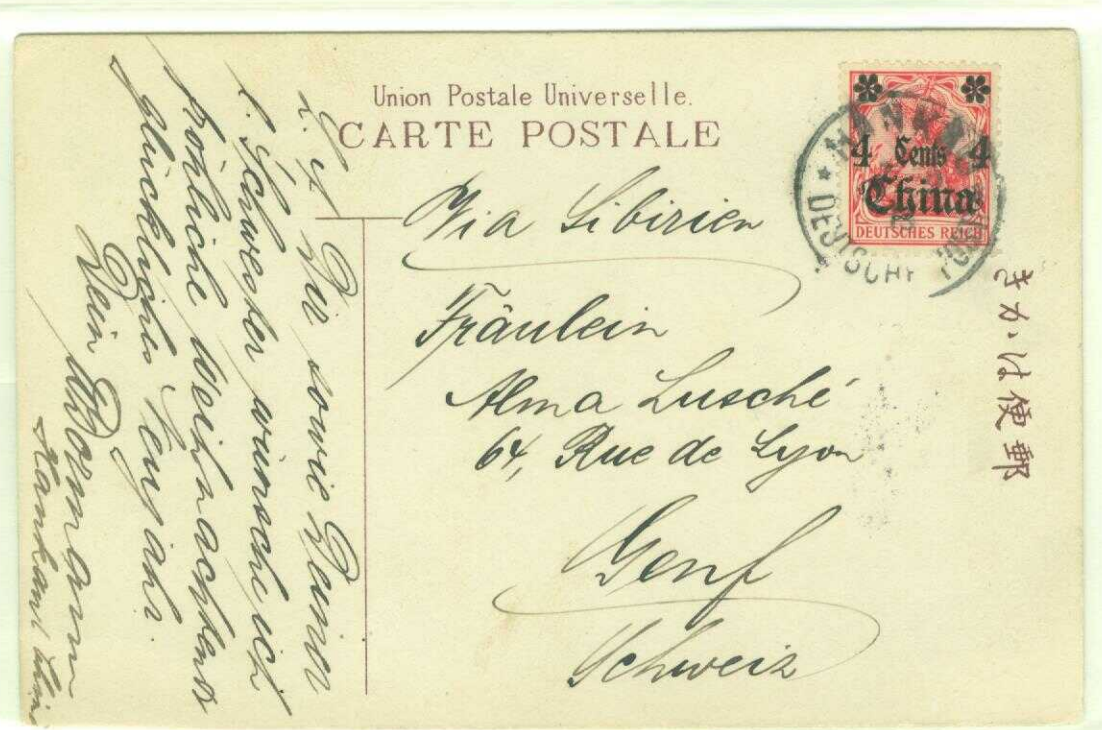 Union Postale Universelle.
CARTE POSTALE
4 Cents 4
China
DEUTSCHES REICH
HANKAU
DEUTSCHE POST
きかは便郵
Via Sibirien
Fräulein
Alma Lusché
64, Rue de Lyon
Genf
Schweiz
Dir sowie Deiner
l. Schwester wünsche ich
fröhliche Weihnachten &
glückliches Neujahr.
Dein
Hankau China